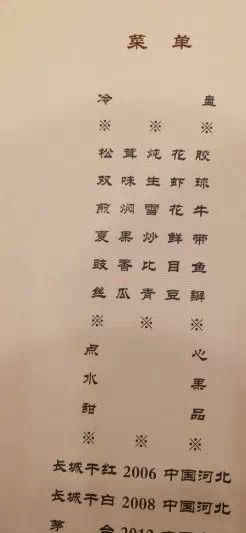 菜 单
冷 盘
※ ※ ※
松茸炖花胶
双味生虾球
煎焖雪花牛
夏果炒鲜带
豉香比目鱼
丝瓜青豆瓣
※ ※ ※
点 心
水 果
甜 品
※ ※ ※
长城干红 2006 中国河北
长城干白 2008 中国河北
茅 台 2012